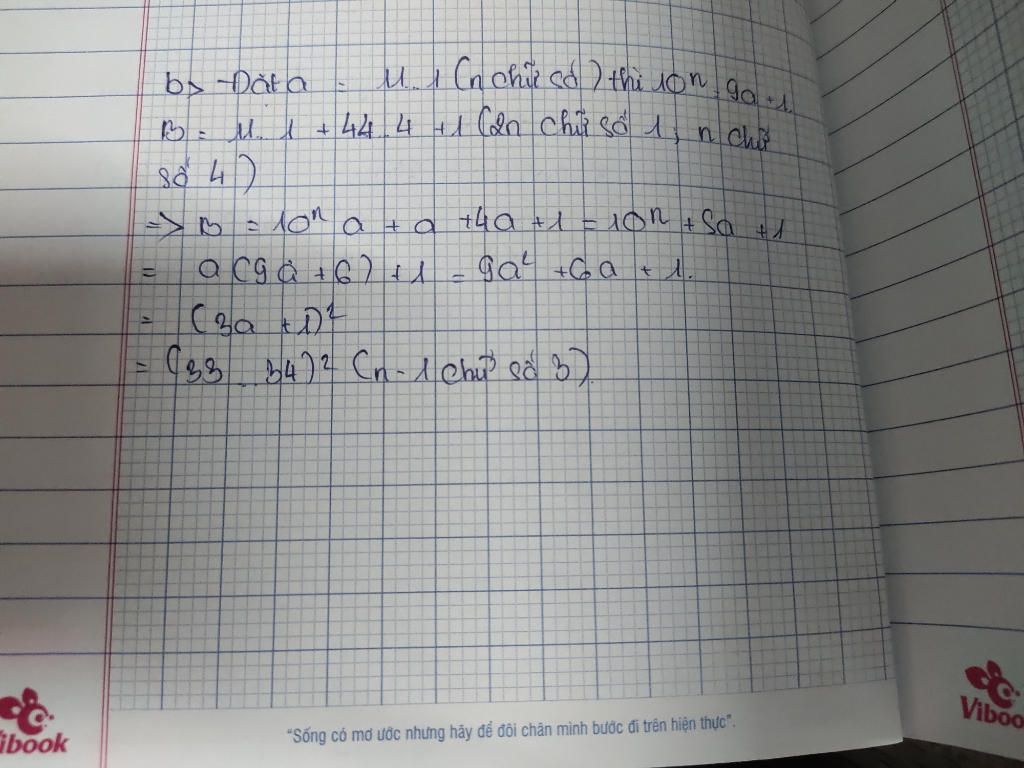 b> - Đặt a = 11..1 (n chữ số) thì 10ⁿ = 9a + 1.
B = 11..1 + 44..4 + 1 (2n chữ số 1, n chữ
số 4)
=> B = 10ⁿ a + a + 4a + 1 = 10ⁿ + 5a + 1
= a (9a + 6) + 1 = 9a² + 6a + 1.
= (3a + 1)²
= (33...34)² (n - 1 chữ số 3).
"Sống có mơ ước nhưng hãy để đôi chân mình bước đi trên hiện thực".
Vibook
Vibook